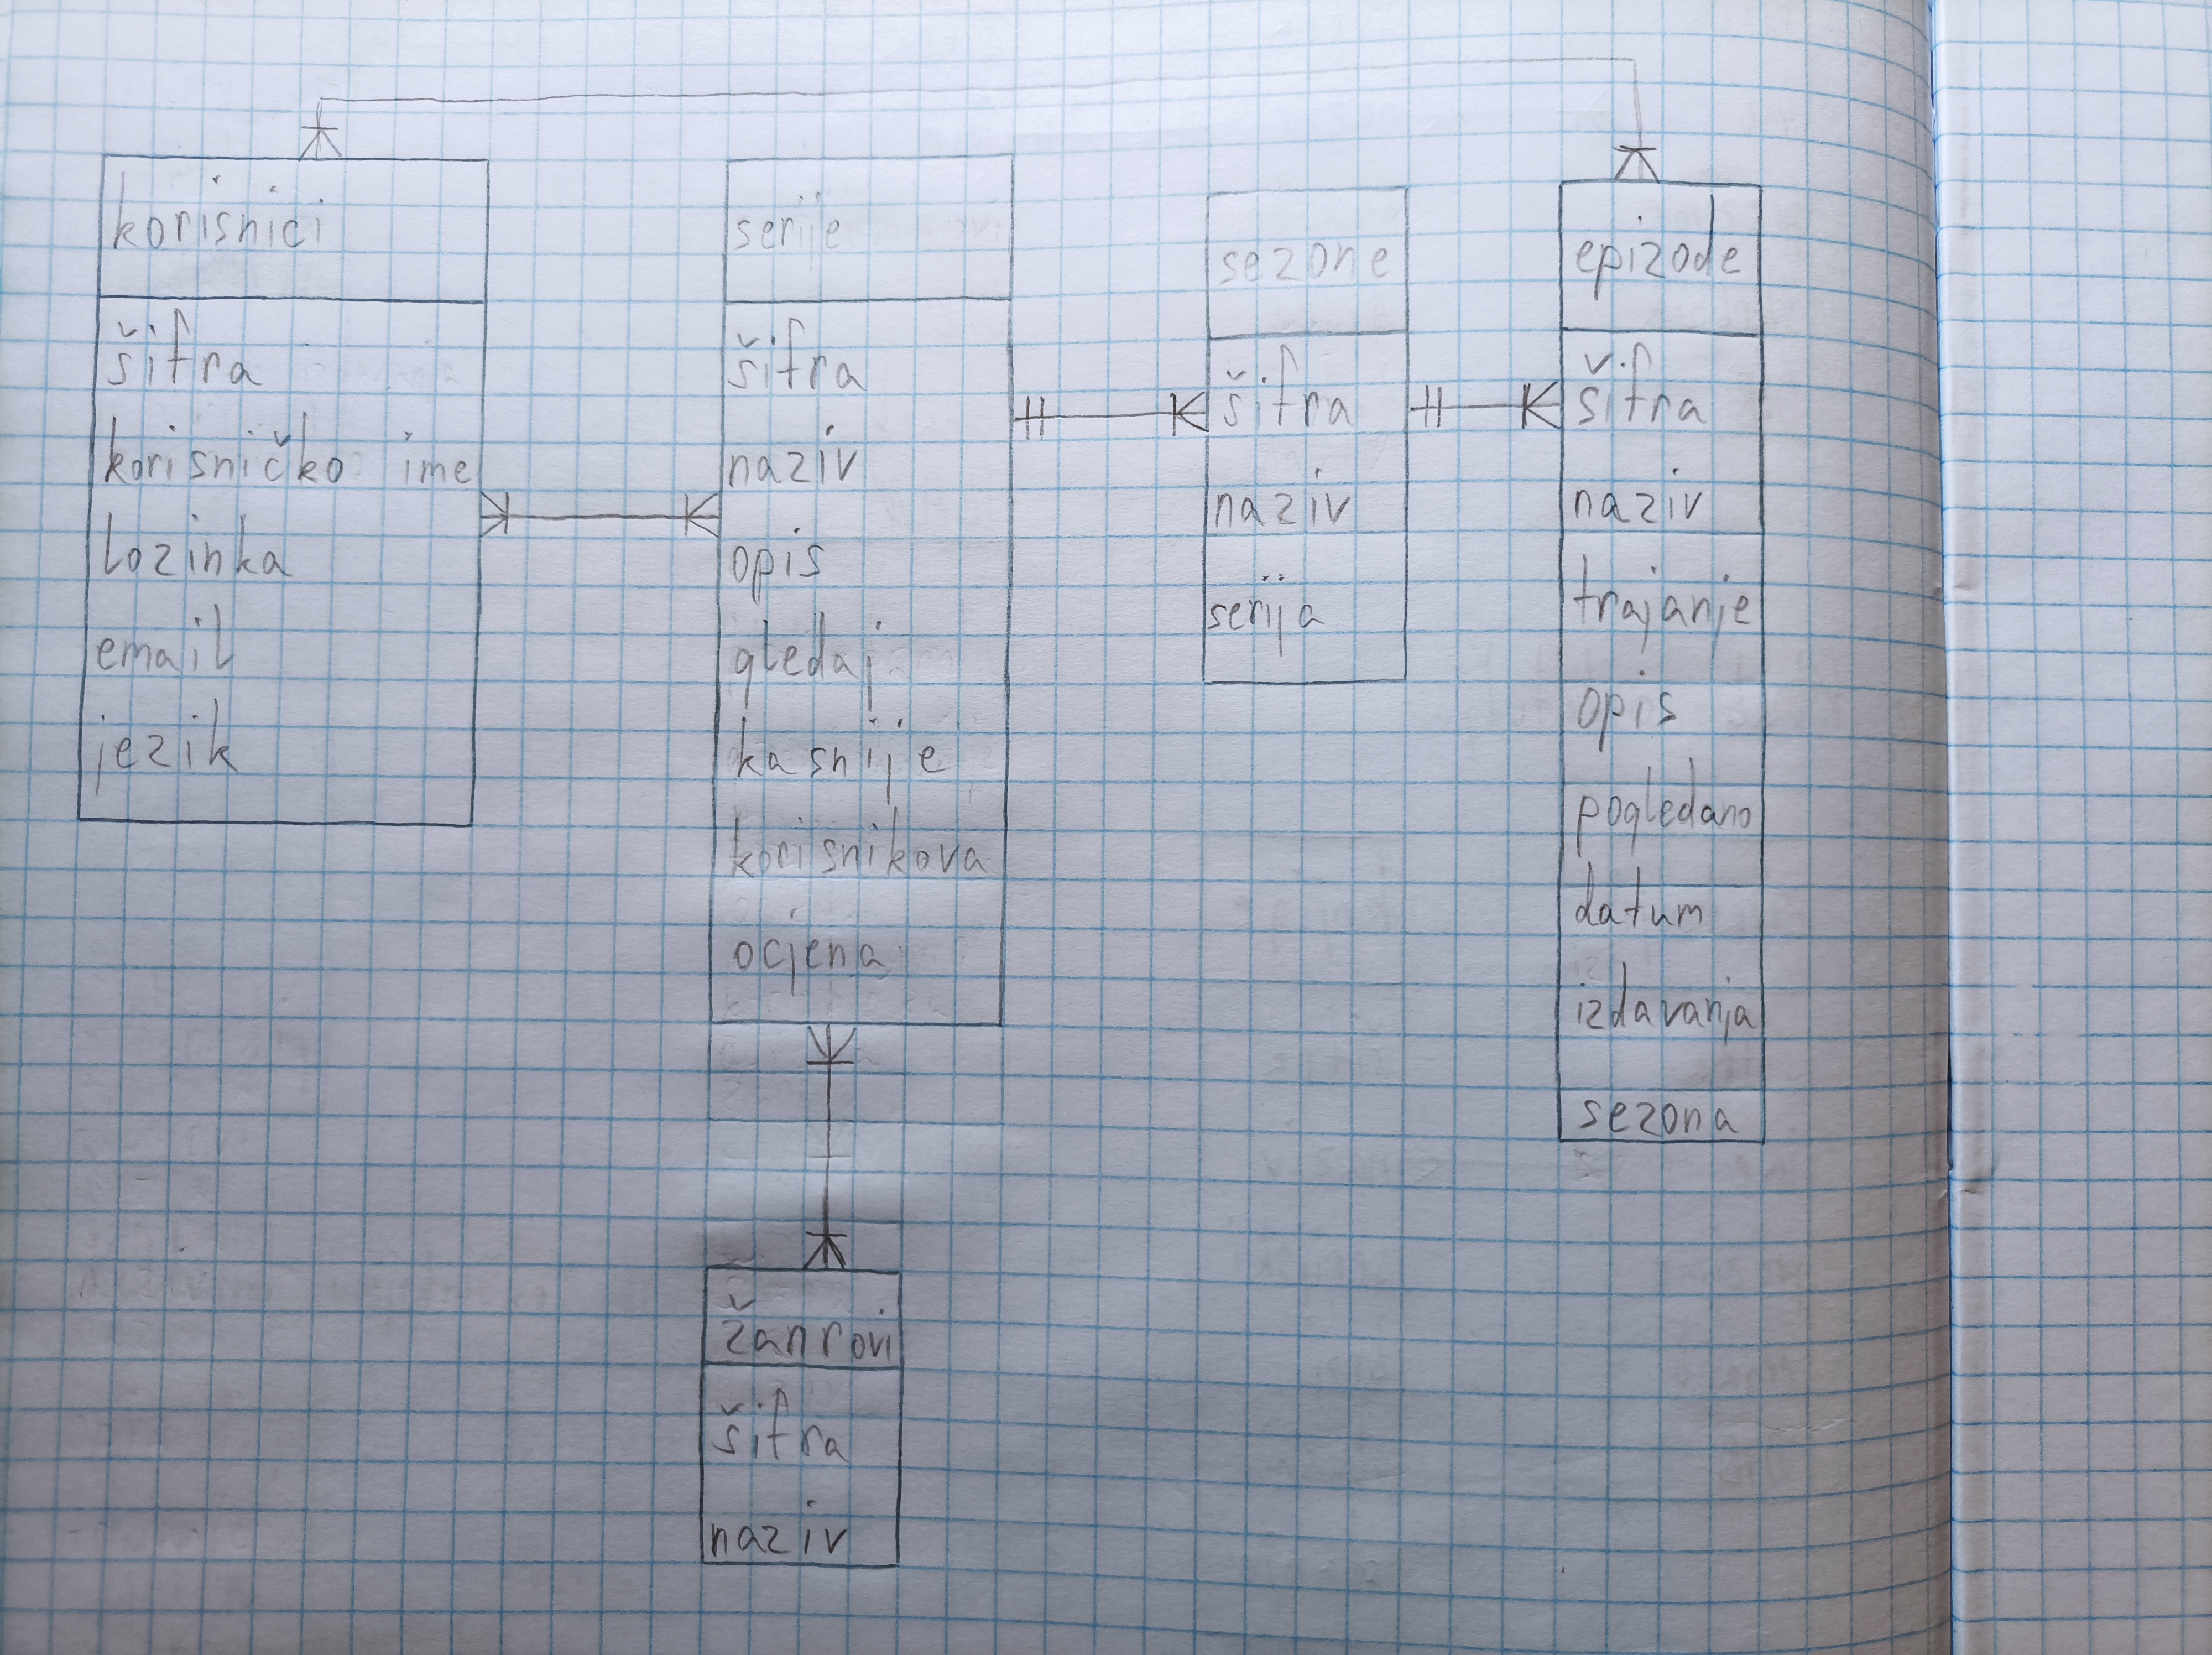 korisnici
šifra
korisničko ime
lozinka
email
jezik
serije
šifra
naziv
opis
gledaj
kasnije
korisnikova
ocjena
sezone
šifra
naziv
serija
epizode
šifra
naziv
trajanje
opis
pogledano
datum
izdavanja
sezona
žanrovi
šifra
naziv